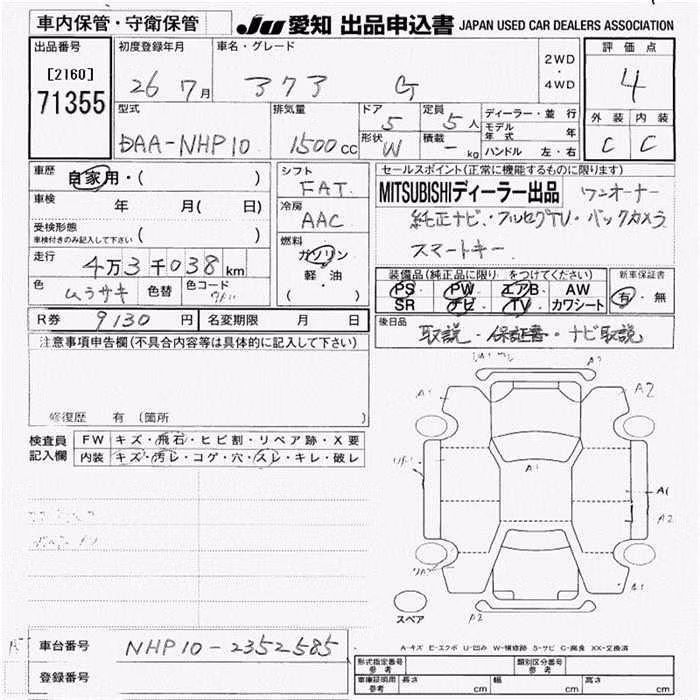 車内保管・守衛保管
JU 愛知 出品申込書 JAPAN USED CAR DEALERS ASSOCIATION
出品番号 [2160] 71355
初度登録年月 26 7月
車名・グレード アクア G
2WD・4WD
評価点 4
外装 内装
C C
型式 DAA-NHP10
排気量 1500cc
ドア 5
形状 W
定員 5人
積載 - kg
ディーラー・並行
モデル年式 年
ハンドル 左・右
車歴 自家用・( )
車検 年 月( 日)
受検形態 ( )
車検付きのみ記入して下さい
走行 4万3千038km
色 ムラサキ 色替 色コード
シフト FAT
冷房 AAC
燃料 ガソリン
軽・油
( )
セールスポイント(正常に機能するものに限ります)
MITSUBISHIディーラー出品 ワンオーナー
純正ナビ・フルセグTV・バックカメラ
スマートキー
装備品(純正品に限り をつけてください)
PS PW エアB AW
SR ナビ TV カワシート
新車保証書
有・無
R券 9130円 名変期限 月 日
後日品 取説・保証書・ナビ取説
注意事項申告欄(不具合内容等は具体的に記入して下さい)
修復歴 有 (箇所 )
検査員記入欄
FW キズ・飛石・ヒビ割・リペア跡・X要
内装 キズ・汚レ・コゲ・穴・スレ・キレ・破レ
A2
A1 A2
A1
A1
A2
A2
スペア
車台番号 NHP10-2352585
登録番号
A-キズ E-エクボ U-凹み W-補修跡 S-サビ C-腐食 XX-交換済
形式指定番号 参考 類別区分番号 参考
車庫証明用 参考 長さ cm 幅 cm 高さ cm